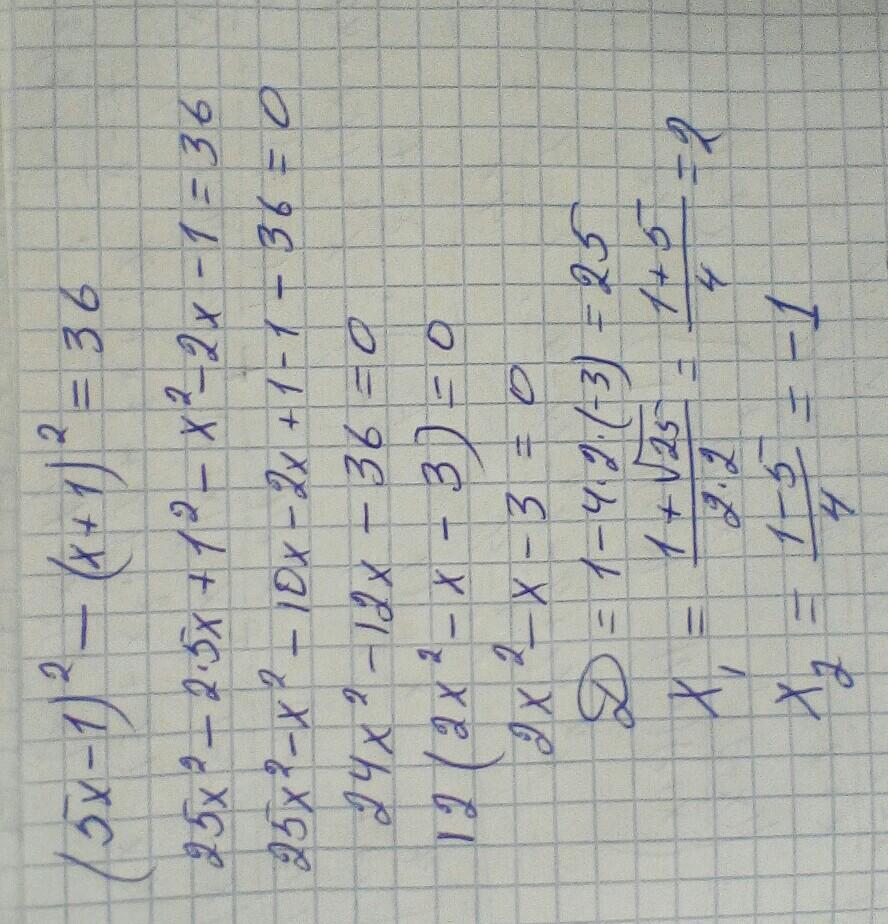 (5x-1)² - (x+1)² = 36
25x² - 2·5x + 1² - x² - 2x - 1 = 36
25x² - x² - 10x - 2x + 1 - 1 - 36 = 0
24x² - 12x - 36 = 0
12(2x² - x - 3) = 0
2x² - x - 3 = 0
D = 1 - 4·2·(-3) = 25
x₁ = (1+√25)/(2·2) = (1+5)/4 = 2
x₂ = (1-5)/4 = -1